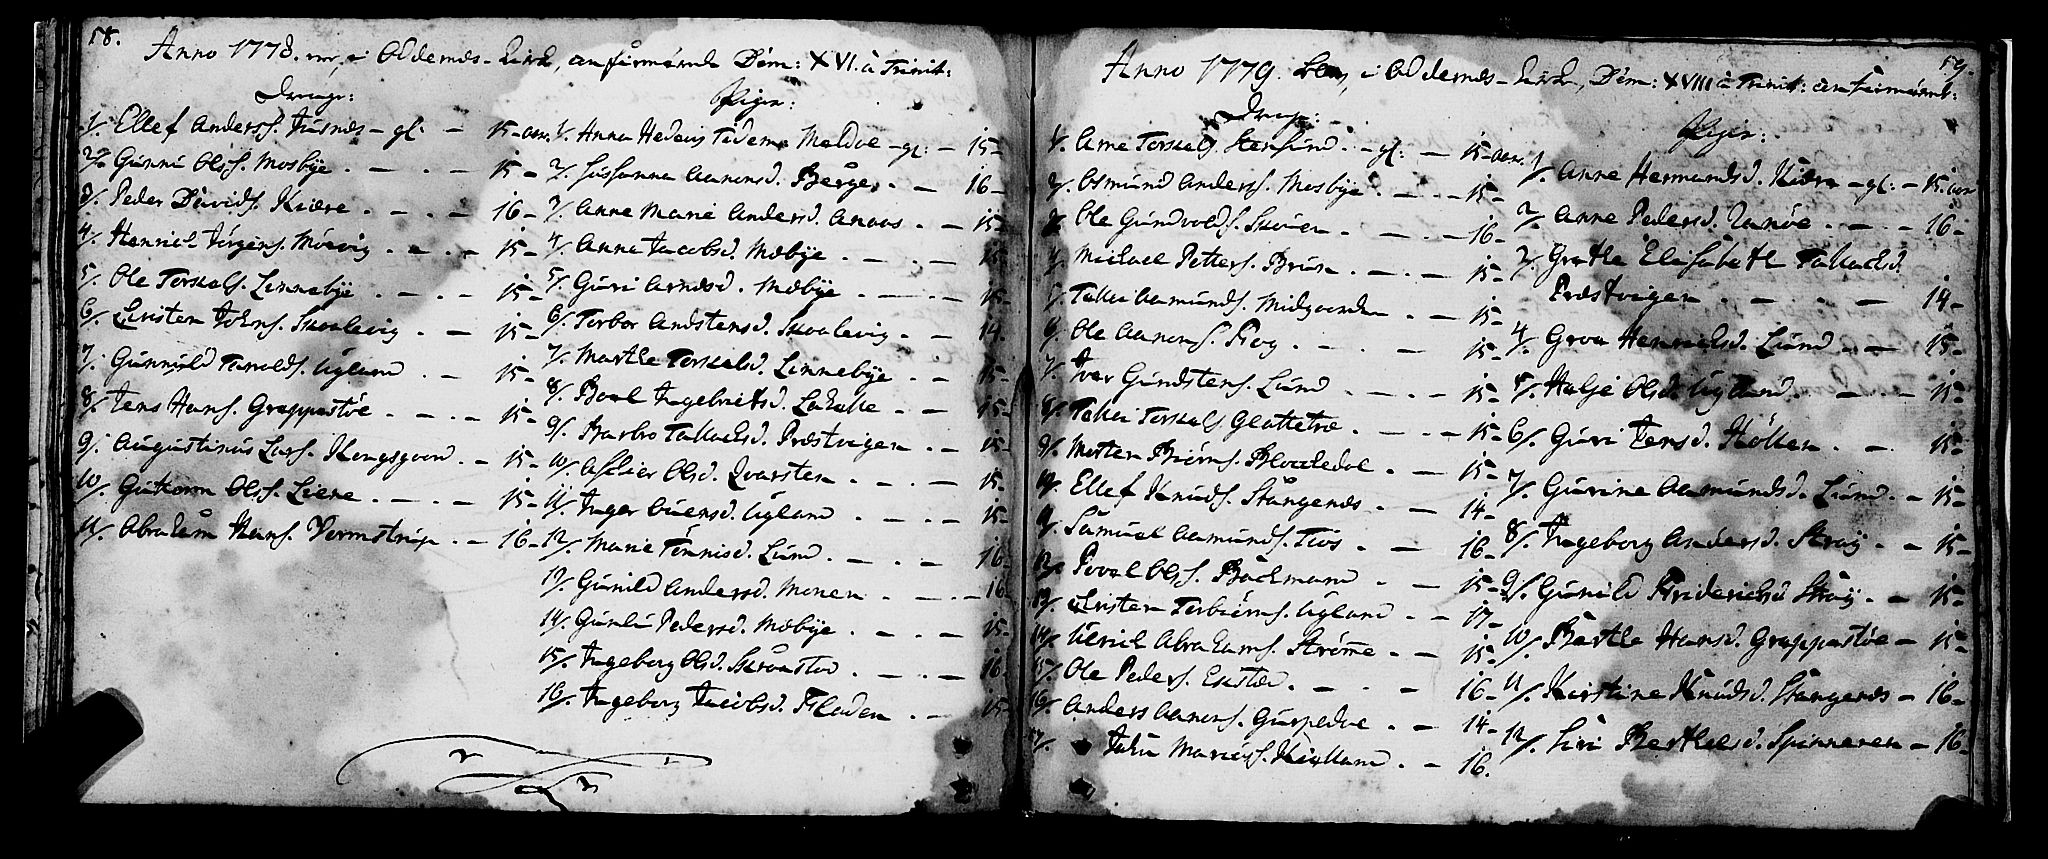 58.
Anno 1778. i Oddernæs-Kirke, confirmerede Dom: XVI. à Trinit:
Drenge:
1/. Ellef Anders. Justnæs - gl: - 15 aar.
2/. Gunni Ols. Mosbÿe . - . - 15 -
3/. Peder Davids. Kiære . - . - 16 -
4/. Henrich Jörgens. Möevig . - . - 15 -
5/. Ole Torkels. Linnebÿe . - . - 15 -
6/. Christen Johns. Skaalevig . - 15 -
7/. Gunnuld Tarolds. Ugland . - 15 -
8/. Jens Hans. Grappestöe . - . - 15 -
9/. Augustinus Lars. Kongsgaard . - 15 -
10/. Guttorm Ols. Liene . - . - 15 -
11/. Abraham Hans. . - 16 -
Piger:
1/. Anna Hedevig Tidem. Meldal - gl: - 15 -
2/. Sussanna Aanensd. Berge . - 16 -
3/. Anne Marie Andersd. Anaas . - 15 -
4/. Anna Jacobsd. Mæbÿe . - . - 15 -
5/. Guri Arnesd. Mæbÿe . - . - 15 -
6/. Torbor Andstensd. Skaalevig . - 14.
7/. Marthe Torkelsd. Linnebÿe . - 15 -
8/. Boel Ingebrethsd. . - 15 -
9/. Barbro Tallachsd. Præstvigen . - 15 -
10/. Aslier Olsd. Qvarsten . - . - 15 -
11/. Inger Evensd. Ugland . - . - 15 -
12/. Marie Tönnisd. Lund . - . - 16 -
13/. Gunild Andersd. Monen . - . - 16 -
14/. Gunild Pedersd. Mæbÿe . - . - 15 -
15/. Ingeborg Olsd. . - . - 16 -
16/. Ingeborg Jacobsd. Fladen . - 15 -
59.
Anno 1779. i Oddernæs-Kirke, Dom: XVIII à Trinit: confirmerede:
Drenge:
1/. Arne Torkels. Stensund . - gl: - 15 aar.
2/. Osmund Anders. Mosbÿe . - . - 15 -
3/. Ole Gundvolds. . - . - 16 -
4/. Michael Petters. Bruun . - . - 15 -
5/. Tallei Aamunds. Midgaarden . - 15 -
6/. Ole Aanens. . - . - 15 -
7/. Iver Gundstens. Lund . - . - 15 -
8/. Tallei Torkels. Glattetræ . - . - 15 -
9/. Morten Biörns. . - 15 -
10/. Ellef Knuds. Stangenæs . - 14 -
11/. Samuel Aamunds. . - 16 -
12/. Povel Ols. Bachmand . - 15 -
13/. Christen Torbiörns. Ugland . - 17 -
14/. Ulrich Abrahams. Strömme . - 15 -
15/. Ole Peders. . - . - 16 -
16/. Anders Aanens. . - 14 -
17/. John . - 16.
Piger:
1/. Anne Hermandsd. Kiære - gl: - 15 aar
2/. Anne Pedersd. . - . - 16 -
3/. Grethe Elisabeth Tallachsd.
Præstvigen . - . - 14 -
4/. Groa Henrichsd. Lund . - 15 -
5/. Halje Olsd. Ugland . - . - 15 -
6/. Guri Jensd. Kölken . - . 15 -
7/. Gurine Aamundsd. Lund . - 15 -
8/. Ingeborg Andersd. Straÿ . - 15 -
9/. Gunild Friderichsd. Straÿ . - 15 -
10/. Berthe Hansd. Grappestöe - 15 -
11/. Kirstine Knudsd. Stangenæs - 16 -
12/. Siri Berthelsd. Spinneren - 16 -